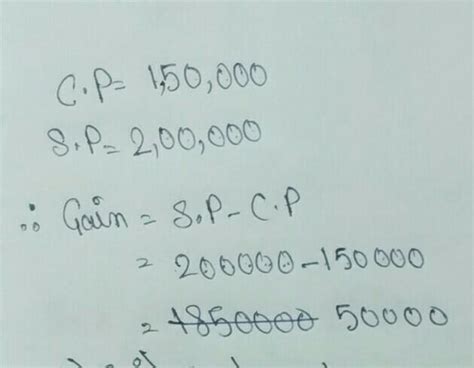 C.P= 1,50,000
S.P= 2,00,000
∴ Gain = S.P - C.P
= 200000 - 150000
= 50000